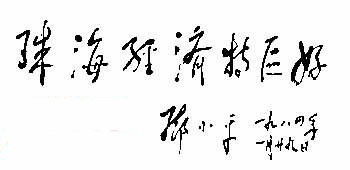 珠海经濟特区好
邓小平 一九八四年
一月廿九日